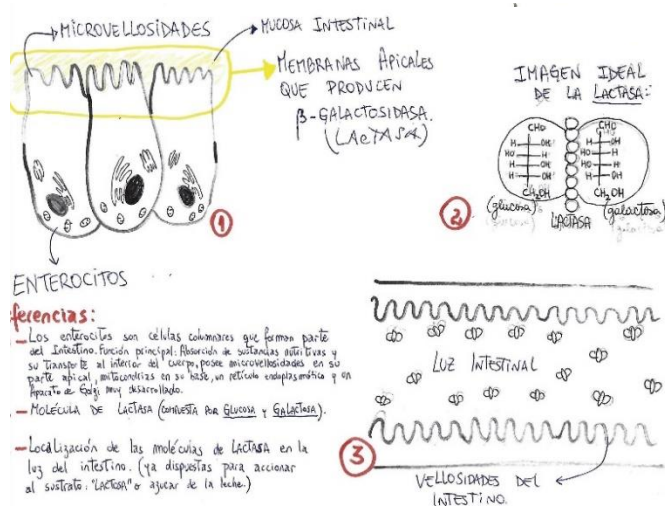 MICROVELLOSIDADES
MUCOSA INTESTINAL
MEMBRANAS APICALES
QUE PRODUCEN
β-GALACTOSIDASA.
(LACTASA)
1
ENTEROCITOS
IMAGEN IDEAL
DE LA LACTASA:
CHO
H OH
HO H
H OH
H OH
CH2OH
(glucosa)
CHO
H OH
HO H
HO H
H OH
CH2OH
(galactosa)
LACTASA
2
ferencias:
— Los enterocitos son células columnares que forman parte
del Intestino. Función principal: Absorción de sustancias nutritivas y
su transporte al interior del cuerpo, posee microvellosidades en su
parte apical, mitocondrias en su base, un retículo endoplasmático y un
Aparato de Golgi muy desarrollado.
— MOLÉCULA DE LACTASA (COMPUESTA POR GLUCOSA y GALACTOSA).
— Localización de las moléculas de LACTASA en la
luz del intestino. (ya dispuestas para accionar
al sustrato: "LACTOSA" o azucar de la leche.)
LUZ INTESTINAL
3
VELLOSIDADES DEL
INTESTINO.